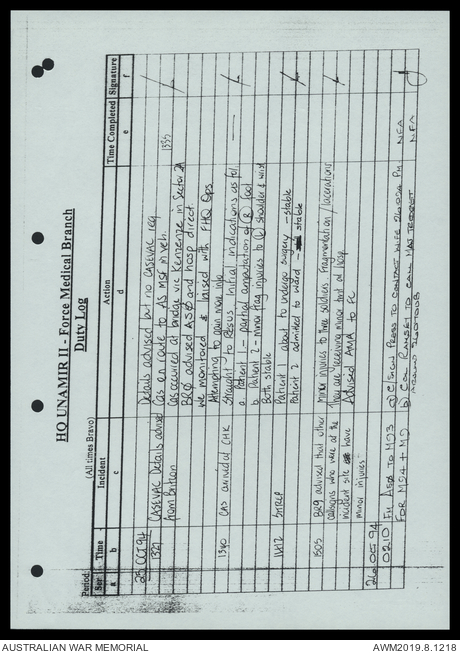 HQ UNAMIR II - Force Medical Branch
Duty Log
(All times Bravo)
Period:
Ser Time Incident Action Time Completed Signature
a b c d e f
25 OCT 94
Details advised but no CASEVAC req
1327 CASEVAC Details advised Cas en route to AS MSF in veh. 1335
from Britcon Cas occurred at bridge vic Kenzenze in Sector
BRO advised ASO and hosp direct.
We monitored & liaised with FHQ Ops
Attempting to gain more info
1340 CAS arrived at CHK Straight to Resus Initial indications as fol.
a. Patient 1 - partial amputation of (R) foot
b. Patient 2 - minor frag injuries to (L) shoulder & wrist
Both stable
1412 SITREP Patient 1 about to undergo surgery - stable
Patient 2 admitted to ward - stable
1505 BRO advised that other Minor injuries to three soldiers fragmentation / lacerations
who were at the They are receiving minor tmt at hosp
incident site have Advised to FC
minor injuries
26 OCT 94
0210 FM ASO TO a) TO CONTACT WIFE PM NFA
FOR b) COL RAMSEY TO CALL NFA
AUSTRALIAN WAR MEMORIAL
AWM2019.8.1218